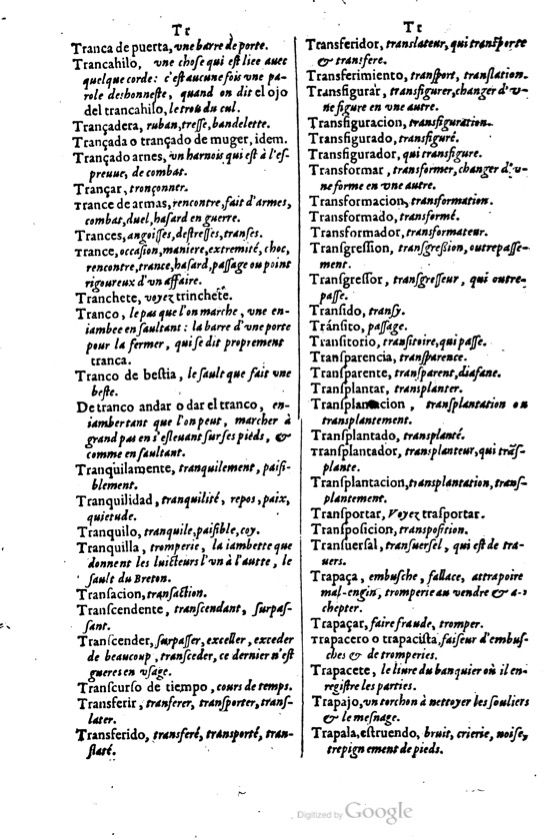 Tr
Tranca de puerta, vne barre de porte.
Trancahilo, vne chose qui est liee auec
quelque corde: c'est aucune fois vne pa-
role deshonneste, quand on dit el ojo
del trancahilo, le trou du cul.
Trançadera, ruban, tresse, bandelette.
Trançada o trançado de muger, idem.
Trançado arnes, vn harnois qui est à l'es-
preuue, de combat.
Trançar, tronçonner.
Trance de armas, rencontre, fait d'armes,
combat, duel, hasard en guerre.
Trances, angoisses, destresses, transes.
Trance, occasion, maniere, extremité, choc,
rencontre, trance, hasard, passage ou point
rigoureux d'vn affaire.
Tranchete, voyez trinchete.
Tranco, le pas que l'on marche, vne en-
iambee en saultant: la barre d'vne porte
pour la fermer, qui se dit proprement
tranca.
Tranco de bestia, le sault que fait vne
beste.
De tranco andar o dar el tranco, en-
iamber tant que l'on peut, marcher à
grand pas en s'esleuant sur ses pieds, &
comme en saultant.
Tranquilamente, tranquilement, paisi-
blement.
Tranquilidad, tranquilité, repos, paix,
quietude.
Tranquilo, tranquile, paisible, coy.
Tranquilla, tromperie, la iambette que
donnent les luicteurs l'vn à l'autre, le
sault du Breton.
Transacion, transaction.
Transcendente, transcendant, surpas-
sant.
Transcender, surpasser, exceller, exceder
de beaucoup, transceder, ce dernier n'est
gueres en vsage.
Transcurso de tiempo, cours de temps.
Transferir, tranferer, transporter, trans-
later.
Transferido, transferé, transporté, tran-
slaté.
Tr
Transferidor, translateur, qui transporte
& transfere.
Transferimiento, transport, translation.
Transfigurar, transfigurer, changer d'v-
ne figure en vne autre.
Transfiguracion, transfiguration.
Transfigurado, transfiguré.
Transfigurador, qui transfigure.
Transformar, transformer, changer d'v-
ne forme en vne autre.
Transformacion, transformation.
Transformado, transformé.
Transformador, transformateur.
Transgression, transgression, outrepasse-
ment.
Transgressor, transgresseur, qui outre-
passe.
Transido, transy.
Tránsito, passage.
Transitorio, transitoire, qui passe.
Transparencia, transparence.
Transparente, transparent, diafane.
Transplantar, transplanter.
Transplantacion, transplantation ou
transplantement.
Transplantado, transplanté.
Transplantador, transplanteur, qui trãs-
plante.
Transplantacion, transplantation, trans-
plantement.
Transportar, Voyez trasportar.
Transposicion, transposition.
Transuersal, transuersel, qui est de tra-
uers.
Trapaça, embusche, fallace, attrapoire
mal-engin, tromperie au vendre & a-
chepter.
Trapaçar, faire fraude, tromper.
Trapacero o trapacista, faiseur d'embus-
ches & de tromperies.
Trapacete, le liure du banquier où il en-
registre les parties.
Trapajo, vn torchon à nettoyer les souliers
& le mesnage.
Trapala, estruendo, bruit, crierie, noise,
trepignement de pieds.
Digitized by Google